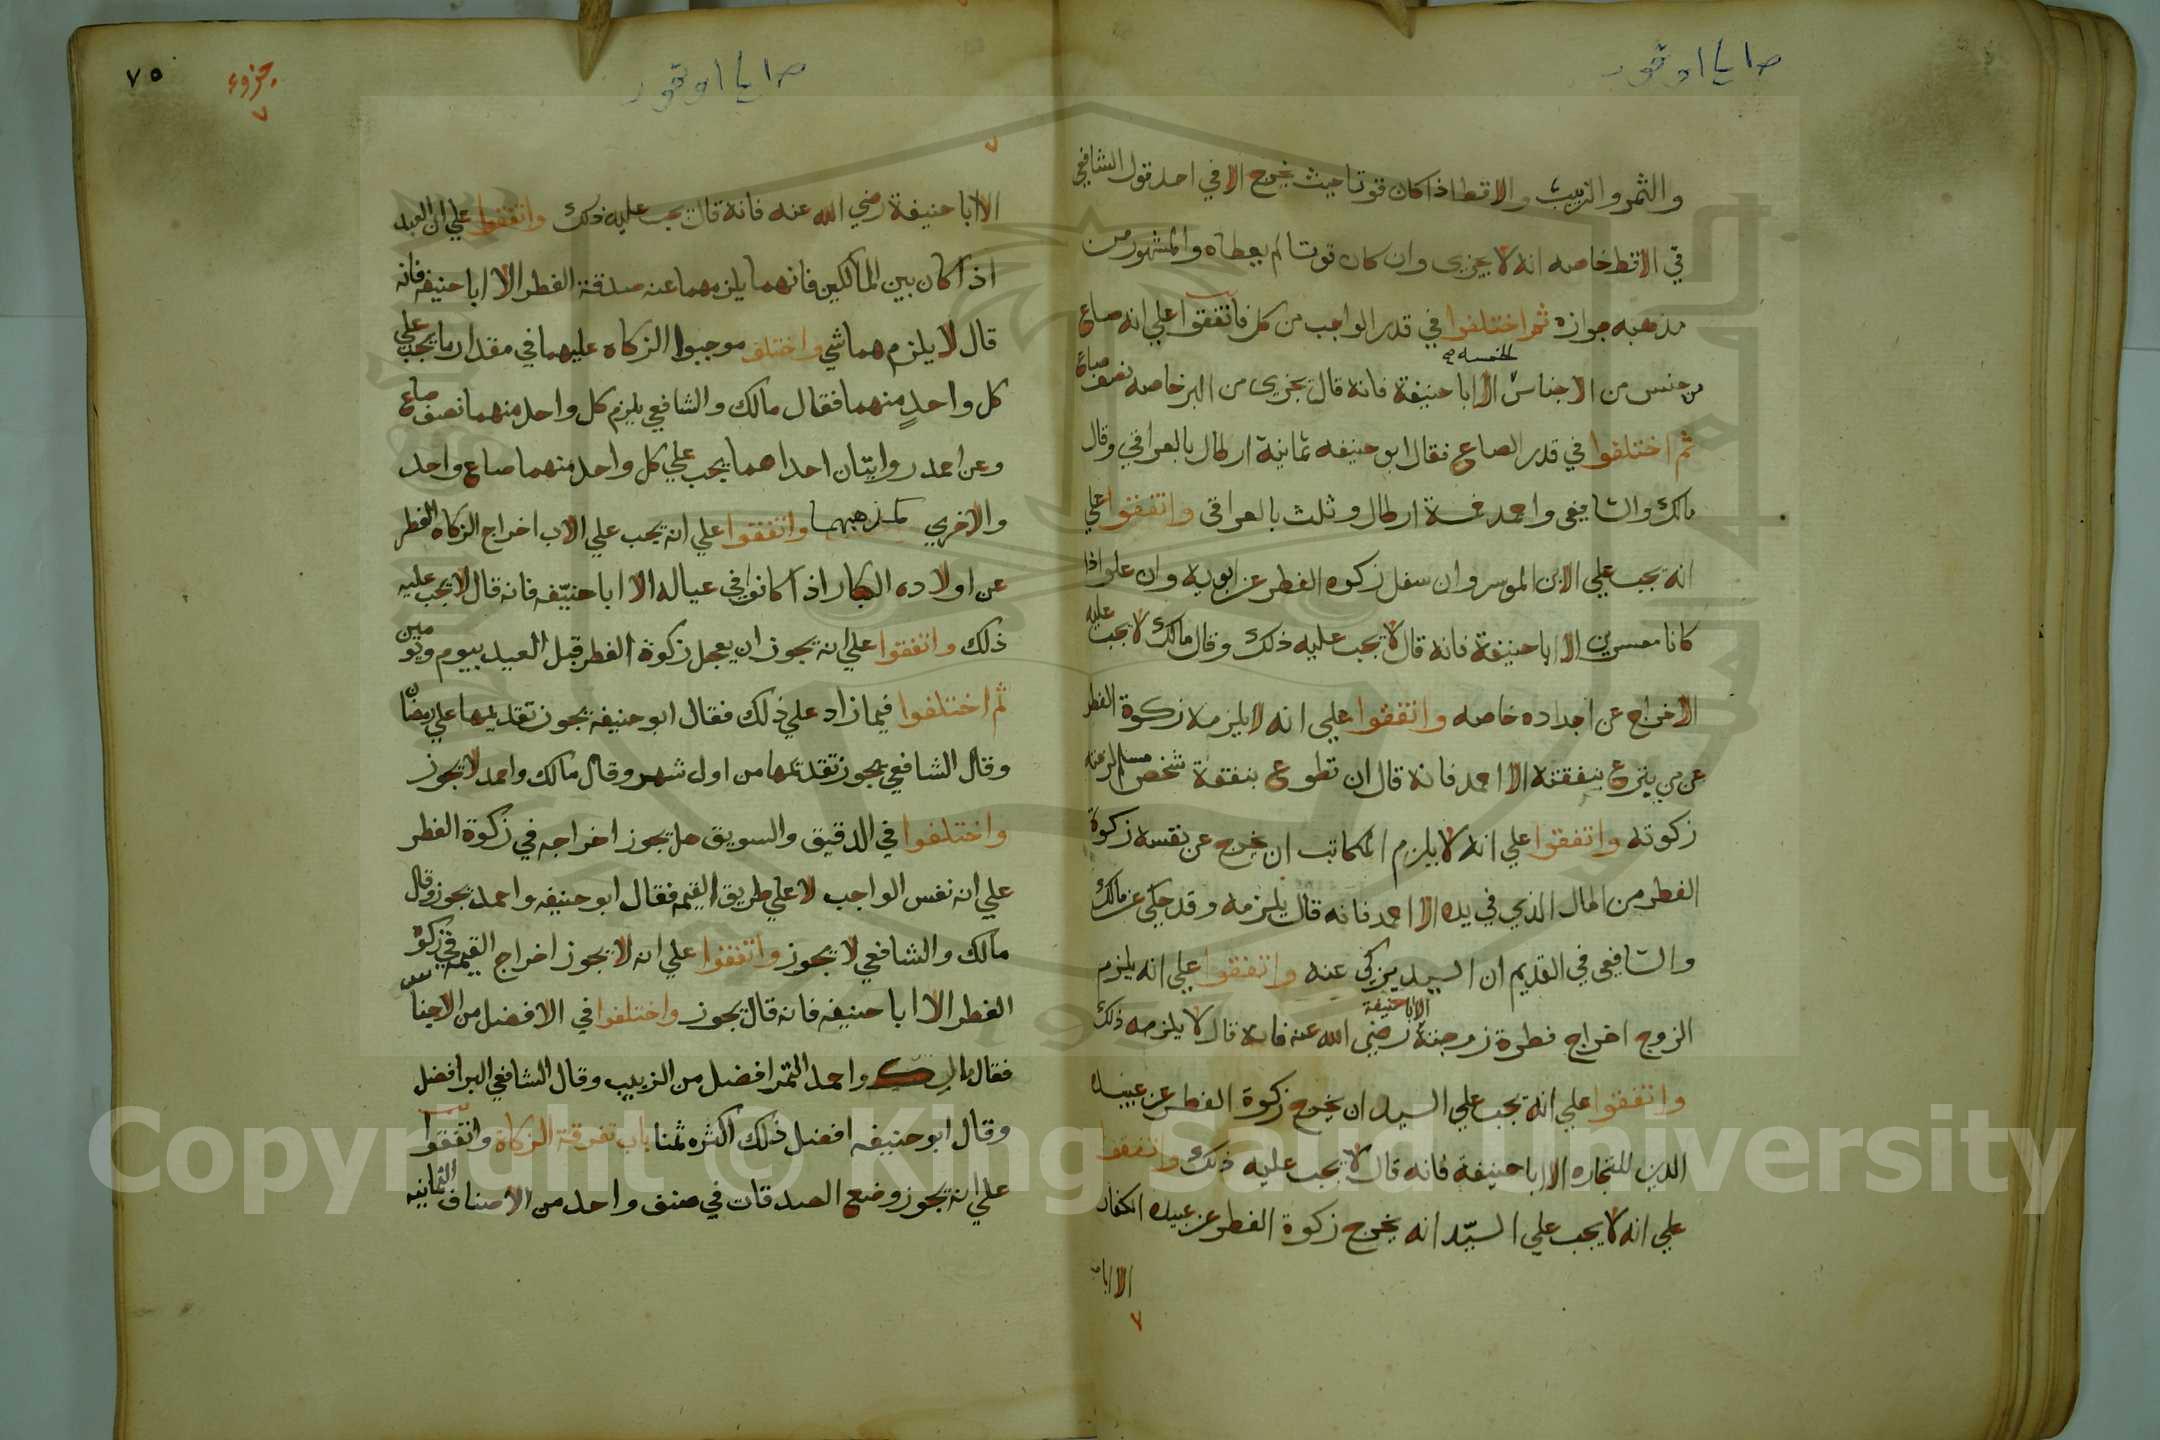 والثمر والزبيب والاقط اذا كان قوتا حيث يخرج الا في احد قول الشافعي
في الاقط خاصه انه لا يجزي وان كان قوتا لم يعطاه والمشهور من
مذهبه جوازه ثم اختلفوا في قدر الواجب من كل فاتفقوا علي انه صاع
من جنس من الاجناس الخمسه الا ابا حنيفة فانه قال يجزي من البر خاصه نصف صاع
ثم اختلفوا في قدر الصاع فقال ابو حنيفه ثمانية ارطال بالعراقي وقال
مالك والشافعي واحمد خمسة ارطال وثلث بالعراقي واتفقوا علي
انه يجب علي الابن الموسر وان سفل زكوه الفطر عن ابويه وان علو اذا
كانا معسرين الا ابا حنيفة فانه قال لا يجب عليه ذلك وقال مالك لا يجب عليه
الاخراج عن اجداده خاصه واتفقوا علي انه لا يلزمه زكوة الفطر
عن من يتبرع بنفقته الا احمد فانه قال ان تطوع بنفقة شخص مسلم لزمته
زكوته واتفقوا علي انه لا يلزم المكاتب ان يخرج عن نفسه زكوة
الفطر من المال الذي في يده الا احمد فانه قال يلزمه وقد حكي عن مالك
والشافعي في القديم ان السيد يزكي عنه واتفقوا علي انه يلزم
الزوج اخراج فطرة زوجته الا ابا حنيفة رضي الله عنه فانه قال لا يلزمه ذلك
واتفقوا علي انه يجب علي السيد ان يخرج زكوة الفطر عن عبيده
الذين للتجاره الا ابا حنيفة فانه قال لا يجب عليه ذلك واتفقوا
علي انه لا يجب علي السيد انه يخرج زكوة الفطر عن عبيده الكفار
الا ابا
٧
٧٥
جزوء
٧
٧
الا ابا حنيفة رضي الله عنه فانه قال يجب عليه ذلك واتفقوا علي ان العبد
اذا كان بين المالكين فانهما يلزمهما عنه صدقة الفطر الا ابا حنيفه فانه
قال لا يلزم هما شي واختلف موجبوا الزكاه عليهما في مقدار ما يجب علي
كل واحدٍ منهما فقال مالك والشافعي يلزم كل واحد منهما نصف صاع
وعن احمد روايتان احداهما يجب علي كل واحد منهما صاع واحد
والاخري كمذهبهما واتفقوا علي انه يجب علي الاب اخراج الزكاه الفطر
عن اولاده الكبار اذا كانوا في عياله الا ابا حنيفه فانه قال لا يجب عليه
ذلك واتفقوا علي انه يجوز ان يعجل زكوة الفطر قبل العيد بيوم ويومين
ثم اختلفوا فيما زاد علي ذلك فقال ابو حنيفة يجوز تقديمها علي رمضان
وقال الشافعي يجوز تقديمها من اول شهر وقال مالك واحمد لا يجوز
واختلفوا في الدقيق والسويق هل يجوز اخراجه في زكوة الفطر
علي انه نفس الواجب لا علي طريق القيمه فقال ابو حنيفه واحمد يجوز وقال
مالك والشافعي لا يجوز واتفقوا علي انه لا يجوز اخراج القيمه في زكوة
الفطر الا ابا حنيفه فانه قال يجوز واختلفوا في الافضل من الاجناس
فقال مالك واحمد التمر افضل من الزبيب وقال الشافعي البر افضل
وقال ابو حنيفه افضل ذلك اكثره ثمنا باب تفرقة الزكاة واتفقوا
علي انه يجوز وضع الصدقات في صنف واحد من الاصناف الثمانيه
Copyright © King Saud University